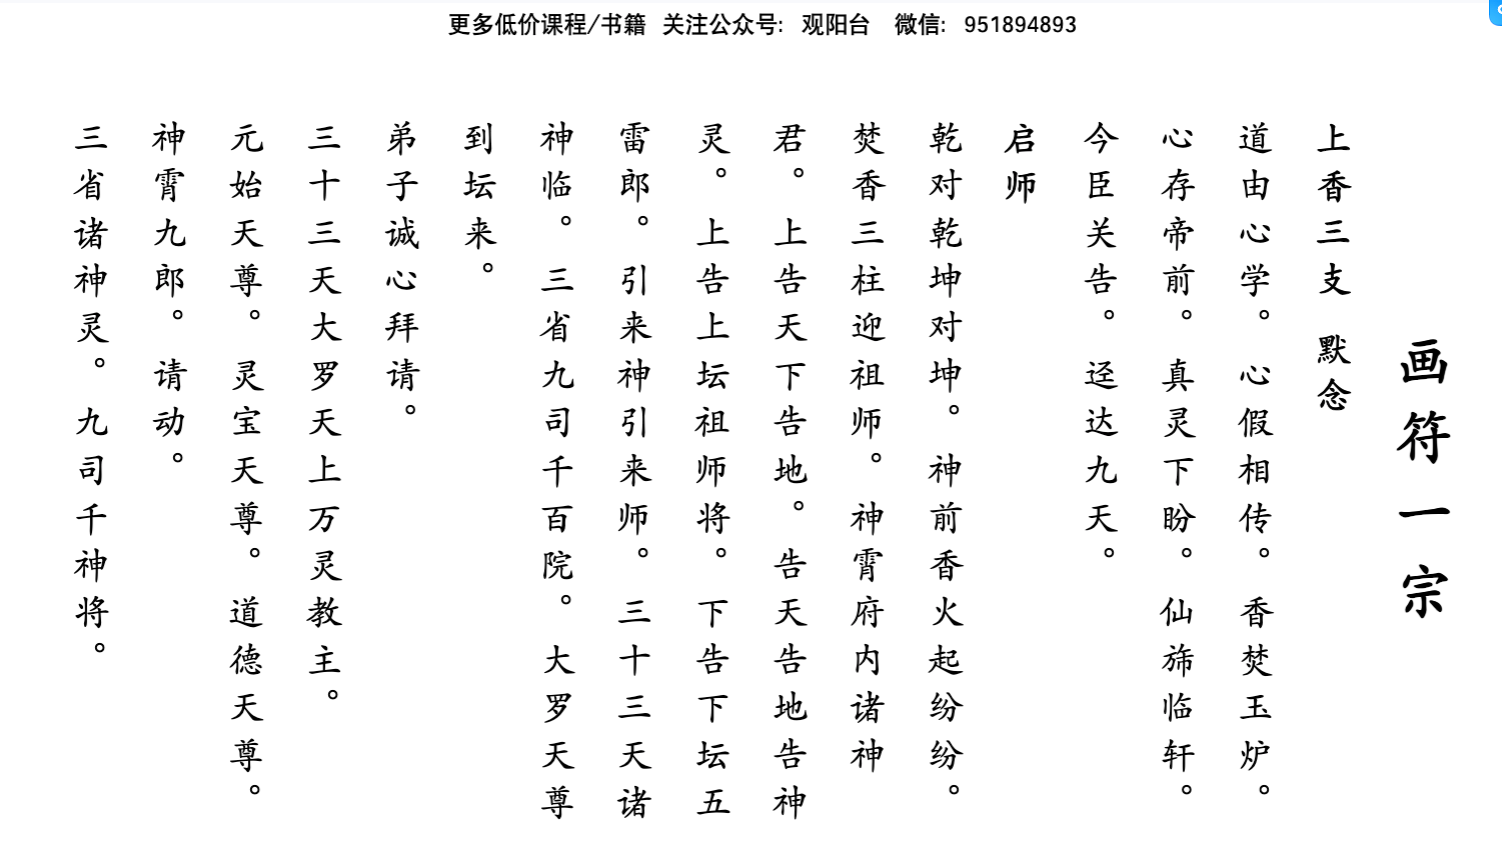 更多低价课程/书籍 关注公众号: 观阳台 微信: 951894893
画符一宗
上香三支 默念
道由心学。心假相传。香焚玉炉。
心存帝前。真灵下盼。仙旆临轩。
今臣关告。迳达九天。
启师
乾对乾坤对坤。神前香火起纷纷。
焚香三柱迎祖师。神霄府内诸神
君。上告天下告地。告天告地告神
灵。上告上坛祖师将。下告下坛五
雷郎。引来神引来师。三十三天诸
神临。三省九司千百院。大罗天尊
到坛来。
弟子诚心拜请。
三十三天大罗天上万灵教主。
元始天尊。灵宝天尊。道德天尊。
神霄九郎。请动。
三省诸神灵。九司千神将。